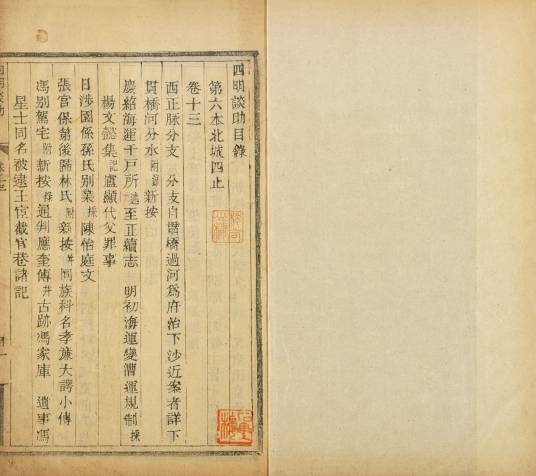 四明談助目錄
第六本北城四止
卷十三
西正脉分支　分支自鑑橋過河爲府治下沙近案者詳下
貫橋河分水附錄新按
慶紹海運千戶所　至正續志　明初海運變漕運規制採
楊文懿集記盧顯代父罪事
日涉園係孫氏別業採陳怡庭文
張宮保第後歸林氏附新按并同族科名孝廉大諤小傳
馮別駕宅附新按　通判應奎傳并古跡馮家庫　遺事馮
星士同名被逮王宦截官巷諸記